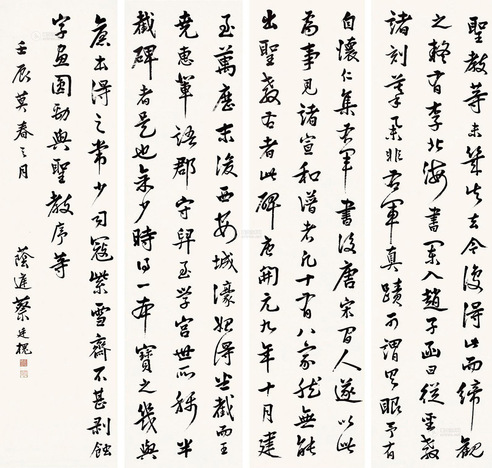 聖教等未其去今復得此而締觀
之有李北海書闌入趙子函曰從聖教
諸刻筆柔非右軍真蹟可謂具眼予有
自懷仁集右軍書後唐宋間人遂以此
為事見諸宣和譜者凡十有八家然無能
出聖教右者此碑唐開元九年十月建
至萬曆末浚西安城濠始得半截而王
堯惠輦語郡守舁至學宮世所稱半
截碑者是也余少時得一本寶之幾與
本得之常少司寇紫雪齋不甚剝蝕
字畫圓勁與聖教序等
壬辰莫春之月
蔭遲蔡廷槐